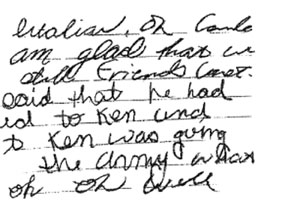 Italian, Oh Carole
am glad that we
still Friends Carol.
said that he had
ed to Ken and
t Ken was going
the Army when
oh Oh well